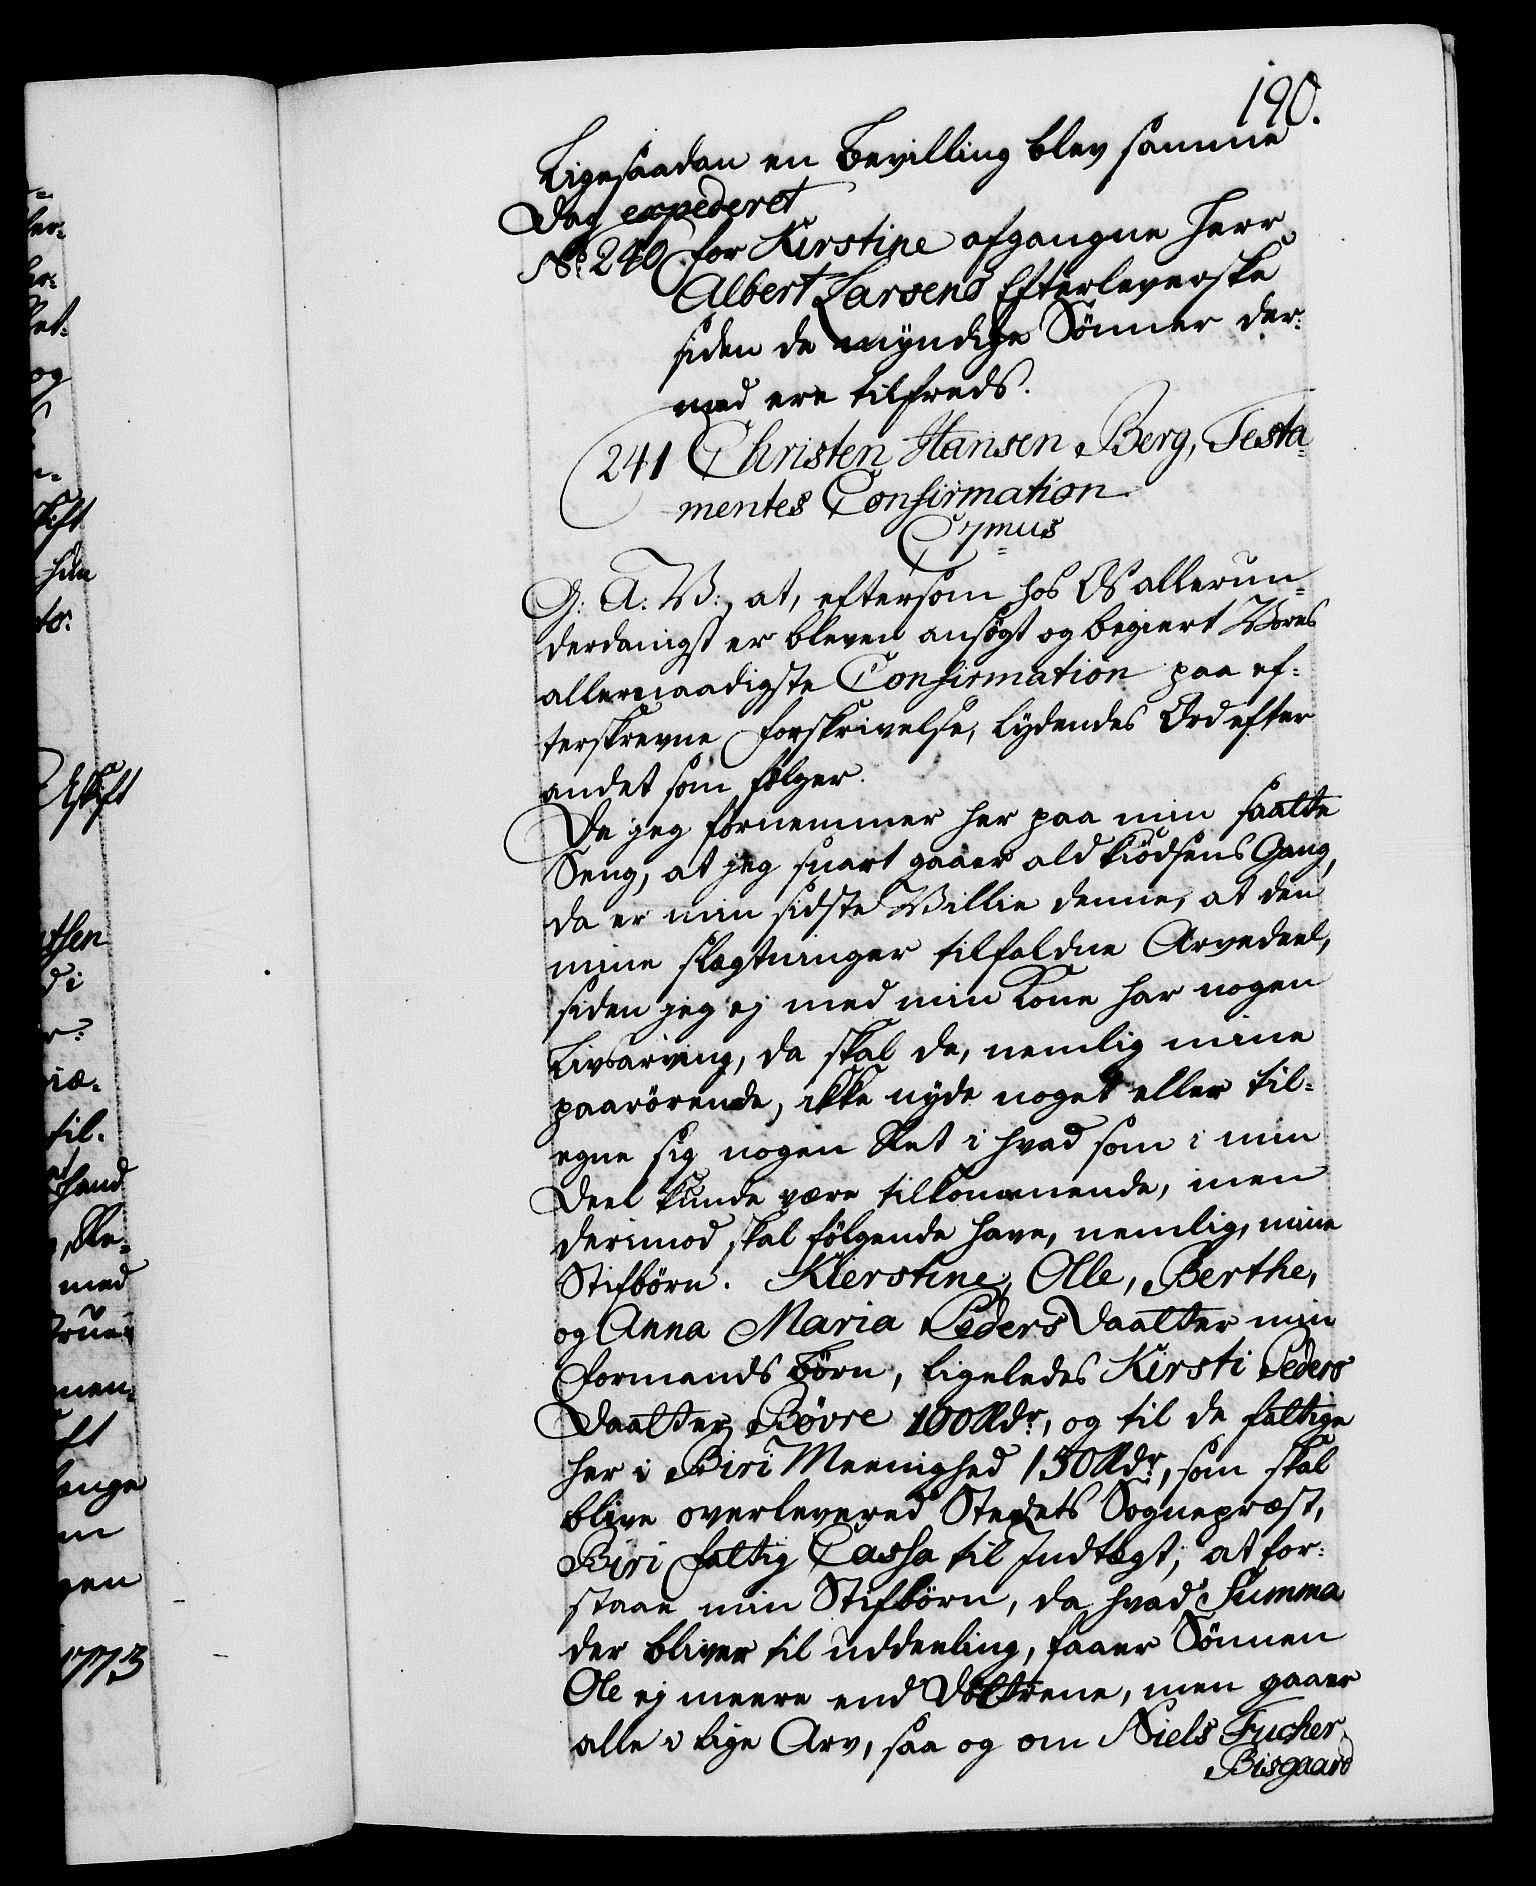 190.
Ligesaadan en Bevilling blev samme
Dag expederet
No. 240 for Kirstine afgangne Herr
Albert Larsens Efterleverske
siden de myndige Sønner der-
med ere tilfreds.
241 Christen Hansen Berg, Testa-
mentes Confirmation
C 7mus
G: A: V:, at, eftersom hos Os allerun-
derdanigst er bleven ansøgt og begiert Vores
allernaadigste Confirmation paa ef-
terskrevne Forskrivelse, lydendes Ord efter
andet som følger.
Da jeg fornemmer her paa min
Seng, at jeg snart gaaer ald Kiødsens Gang,
da er min sidste Villie denne, at den
mine Slægtninger tilfaldne Arvedeel,
siden jeg ej med min Kone har nogen
Livsarving, da skal de, nemlig mine
paarörende, ikke nyde noget eller til-
egne sig nogen Ret i hvad som i min
Deel kunde være tilkommende, men
derimod skal følgende have, nemlig, mine
Stifbörn. Kierstine, Olle, Berthe,
og Anna Maria Peders Daatter min
Formands Børn, ligeledes Kirsti Peders
Daatter Bövre 100 Rdr, og til de fattige
her i Biri Meenighed 150 Rdr, som skal
blive overlevered Stedets Sognepræst,
Biri fattig Cassa til Indtægt; at for-
staae min Stifbörn, da hvad Summa
der bliver til uddeeling, faaer Sönnen
Ole ej meere end Döttrene, men gaaer
alle i lige Arv, saa og om Niels Fucher
Bisgaard